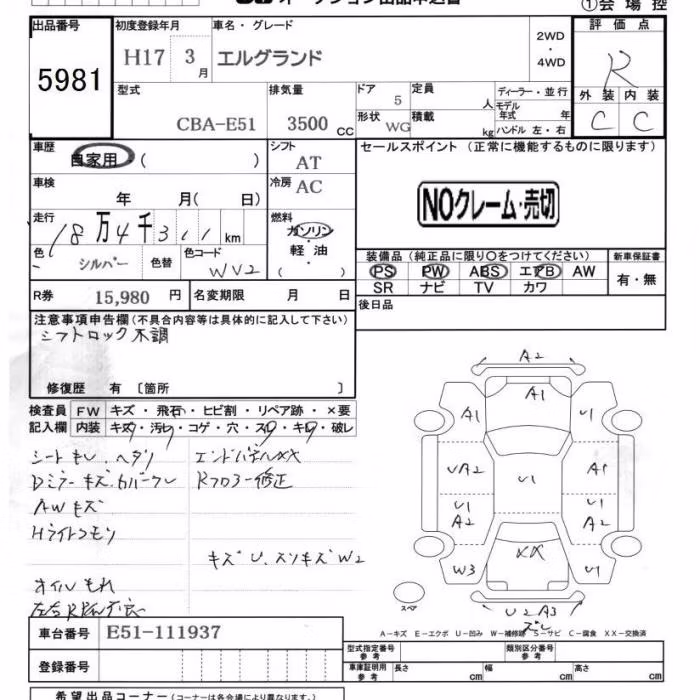 ①会場控
出品番号
5981
初度登録年月
H17 3月
車名・グレード
エルグランド
2WD
・
4WD
評価点
R
外装 内装
C C
型式
CBA-E51
排気量
3500 CC
ドア
5
形状 WG
定員
人
積載
kg
ディーラー・並行
モデル年式 年
ハンドル 左・右
車歴
自家用 ( )
シフト
AT
車検
年 月( 日)
冷房 AC
走行
18万4千311 km
燃料
ガソリン
・
軽油
( )
色
シルバー
色替
色コード
WV2
R券 15,980 円
名変期限 月 日
セールスポイント (正常に機能するものに限ります)
NOクレーム・売切
装備品 (純正品に限り○をつけてください)
PS PW ABS エアB AW
SR ナビ TV カワ
新車保証書
有・無
後日品
注意事項申告欄 (不具合内容等は具体的に記入して下さい)
シフトロック不調
修復歴 有 〔箇所 〕
検査員 FW キズ・飛石・ヒビ割・リペア跡・×要
記入欄 内装 キズ・汚レ・コゲ・穴・スレ・キレ・破レ
AWキズ
Hライトクモリ
キズ U.スリキズ W2
オイルもれ
A2
A1
A1
U1
UA2
U1
A1
U1
A2
U1
A2
XX
W3
U1
スペア
U2A3
ズレ
A-キズ E-エクボ U-凹み W-補修跡 S-サビ C-腐食 XX-交換済
車台番号 E51-111937
登録番号
型式指定番号
参考
類別区分番号
参考
車庫証明用
参考
長さ cm 幅 cm 高さ cm
希望出品コーナー (コーナーは各会場により異なります。)